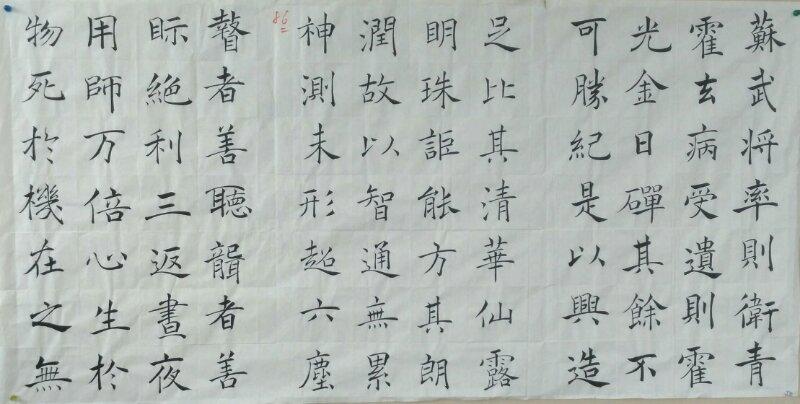 蘇武将率則衛青
霍去病受遺則霍
光金日磾其餘不
可勝紀是以興造
足比其清華仙露
明珠詎能方其朗
潤故以智通無累
神測未形超六塵
86
瞽者善聽聾者善
眎絶利三返晝夜
用師万倍心生於
物死於機在之無